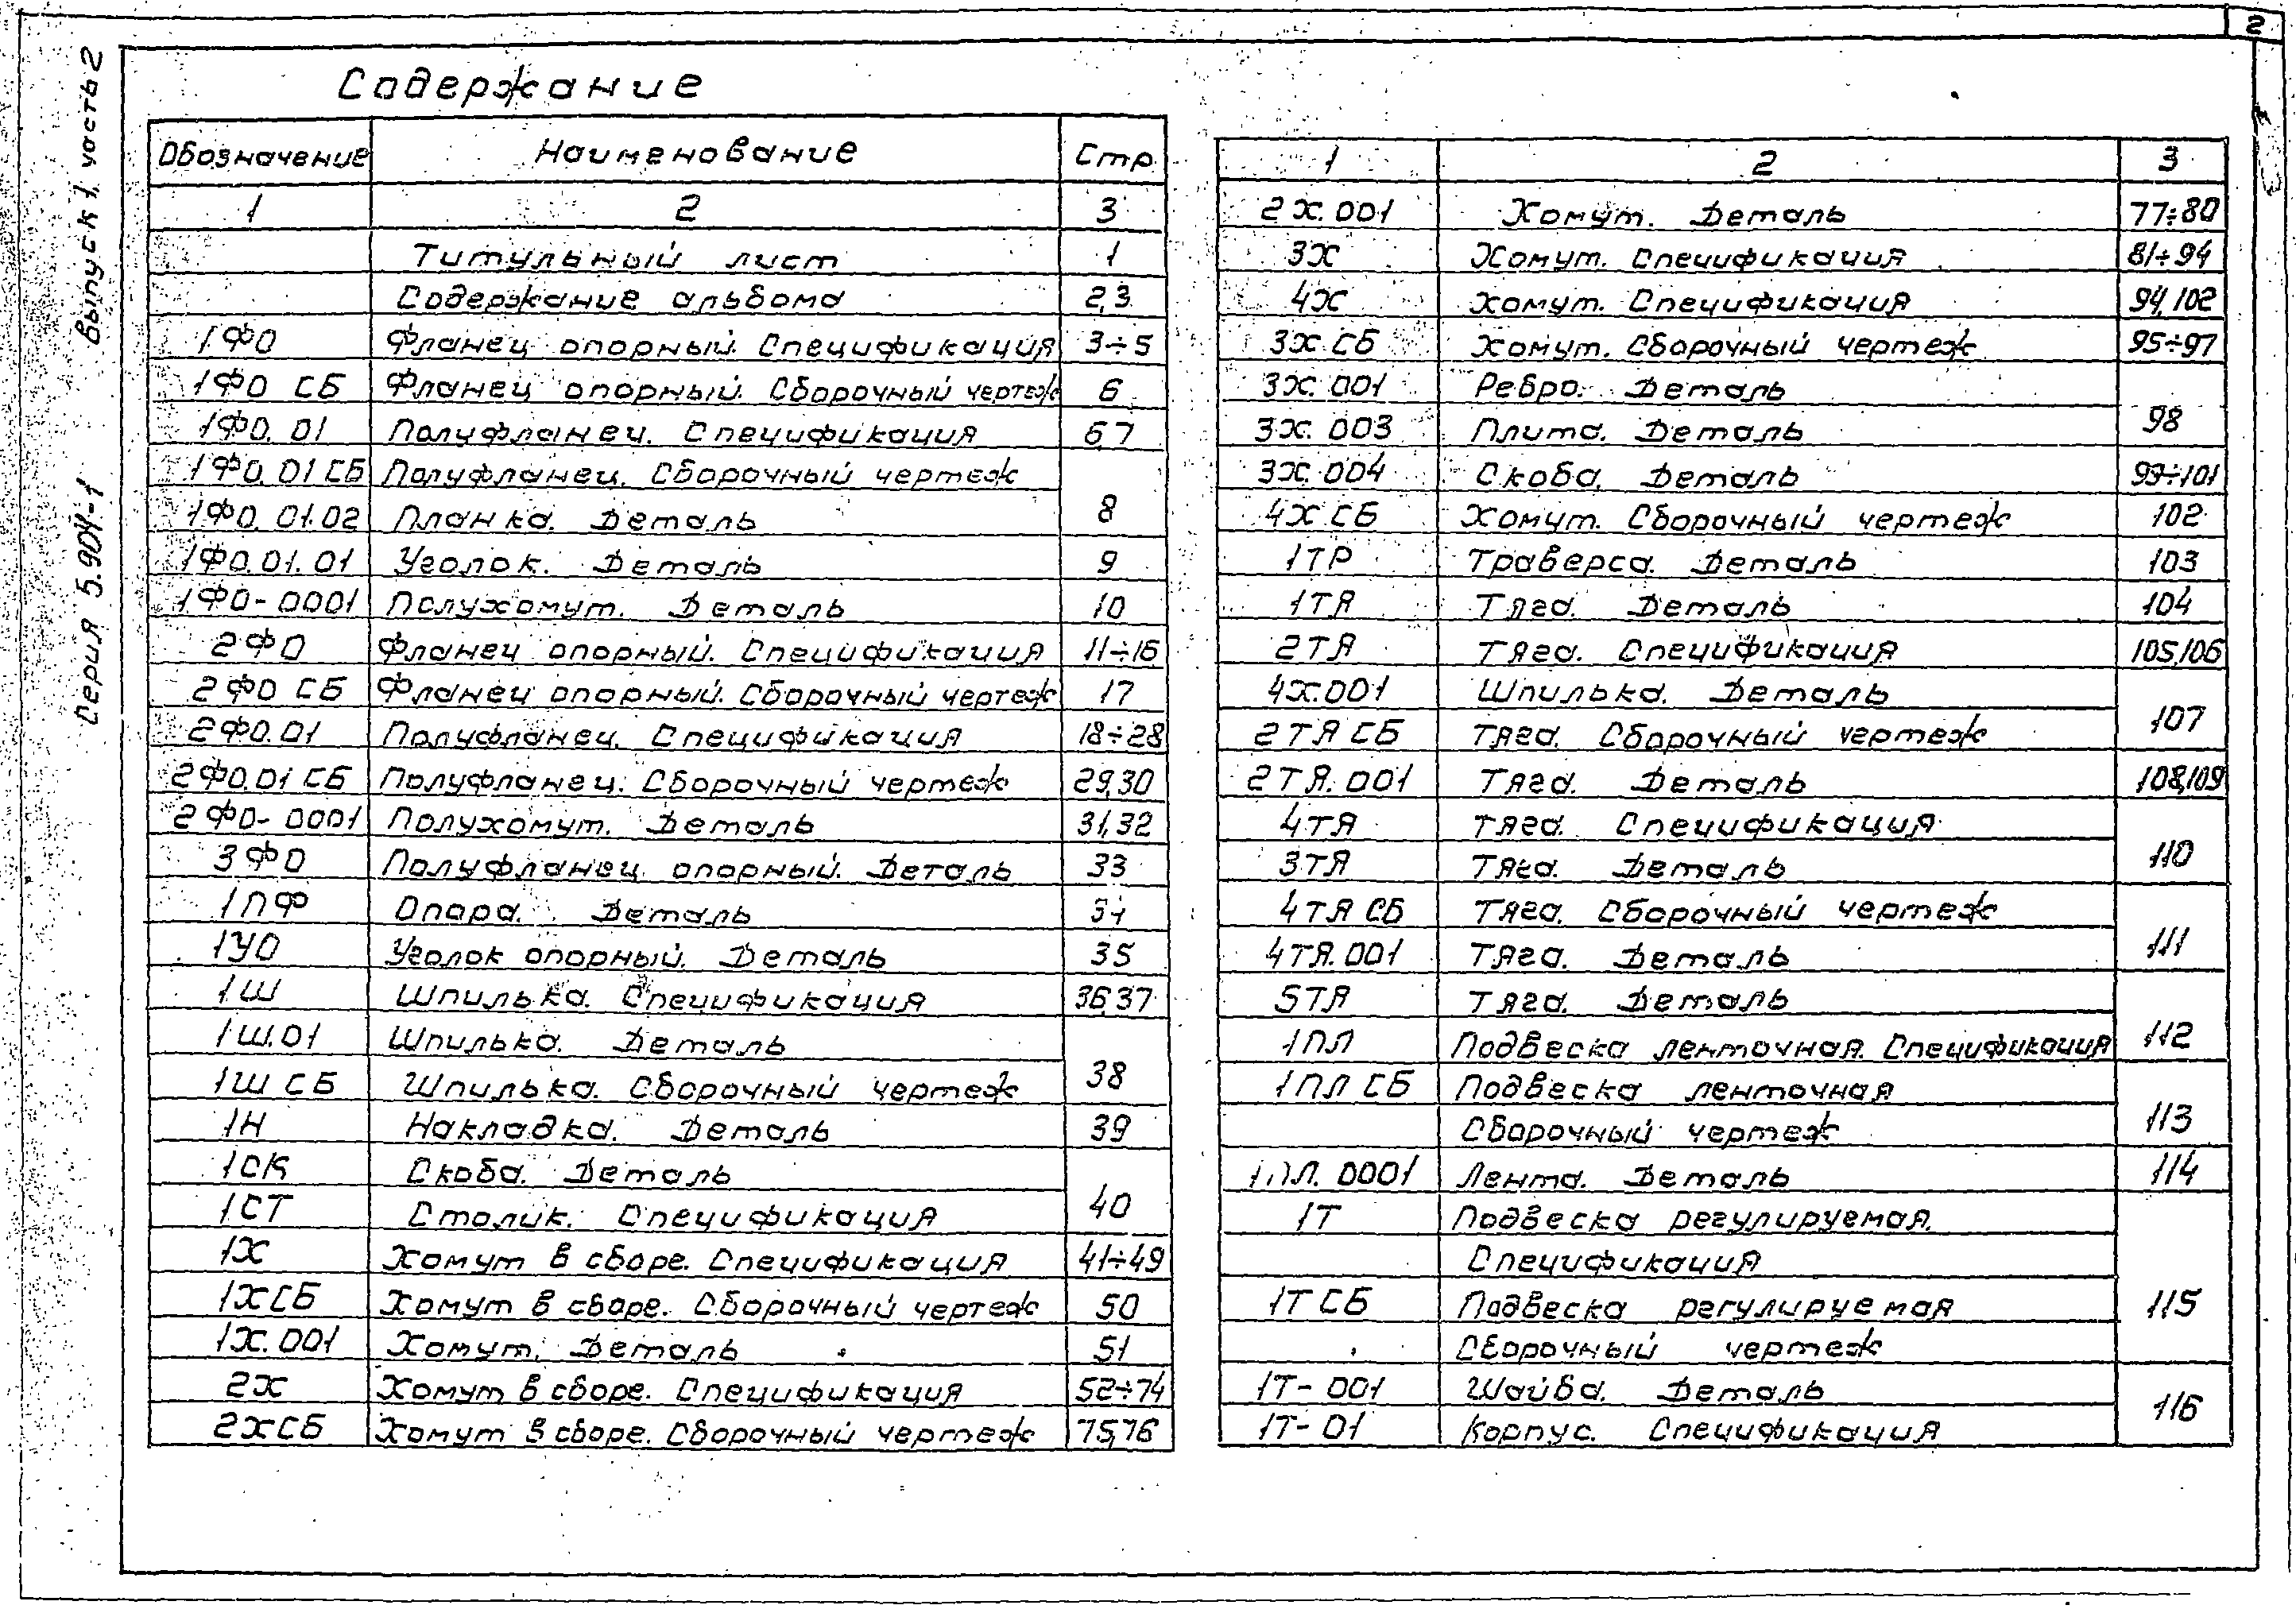 2
Серия 5.904-1 Выпуск 1 часть 2
Содержание
Обозначение Наименование Стр
1 2 3
Титульный лист 1
Содержание альбома 2,3
1ФО Фланец опорный. Спецификация 3÷5
1ФО СБ Фланец опорный. Сборочный чертеж 6
1ФО.01 Полуфланец. Спецификация 6,7
1ФО.01 СБ Полуфланец. Сборочный чертеж
1ФО.01.02 Планка. Деталь 8
1ФО.01.01 Уголок. Деталь 9
1ФО-0001 Полухомут. Деталь 10
2ФО Фланец опорный. Спецификация 11÷16
2ФО СБ Фланец опорный. Сборочный чертеж 17
2ФО.01 Полуфланец. Спецификация 18÷28
2ФО.01 СБ Полуфланец. Сборочный чертеж 29,30
2ФО-0001 Полухомут. Деталь 31,32
3ФО Полуфланец опорный. Деталь 33
1ПФ Опора. Деталь 34
1УО Уголок опорный. Деталь 35
1Ш Шпилька. Спецификация 36,37
1Ш.01 Шпилька. Деталь
1Ш СБ Шпилька. Сборочный чертеж 38
1Н Накладка. Деталь 39
1СК Скоба. Деталь
1СТ Столик. Спецификация 40
1Х Хомут в сборе. Спецификация 41÷49
1ХСБ Хомут в сборе. Сборочный чертеж 50
1Х.001 Хомут. Деталь 51
2Х Хомут в сборе. Спецификация 52÷74
2ХСБ Хомут в сборе. Сборочный чертеж 75,76
1 2 3
2Х.001 Хомут. Деталь 77÷80
3Х Хомут. Спецификация 81÷94
4Х Хомут. Спецификация 94,102
3Х СБ Хомут. Сборочный чертеж 95÷97
3Х.001 Ребро. Деталь
3Х.003 Плита. Деталь 98
3Х.004 Скоба. Деталь 99÷101
4Х СБ Хомут. Сборочный чертеж 102
1ТР Траверса. Деталь 103
1ТЯ Тяга. Деталь 104
2ТЯ Тяга. Спецификация 105,106
4Х.001 Шпилька. Деталь
2ТЯ СБ Тяга. Сборочный чертеж 107
2ТЯ.001 Тяга. Деталь 108,109
4ТЯ Тяга. Спецификация
3ТЯ Тяга. Деталь 110
4ТЯ СБ Тяга. Сборочный чертеж
4ТЯ.001 Тяга. Деталь 111
5ТЯ Тяга. Деталь
1ПЛ Подвеска ленточная. Спецификация 112
1ПЛ СБ Подвеска ленточная
Сборочный чертеж 113
1ПЛ.0001 Лента. Деталь 114
1Т Подвеска регулируемая.
Спецификация
1Т СБ Подвеска регулируемая 115
Сборочный чертеж
1Т-001 Шайба. Деталь
1Т-01 Корпус. Спецификация 116